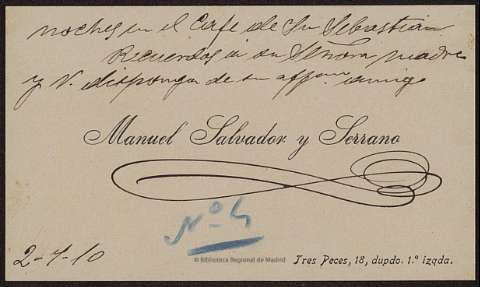 noches en el Café de Sn Sebastian
Recuerdos a su Señora madre
y V. disponga de su affmo. amigo
Manuel Salvador y Serrano
Nº 4
2-7-10
© Biblioteca Regional de Madrid
Tres Peces, 18, dupdo. 1.º izqda.